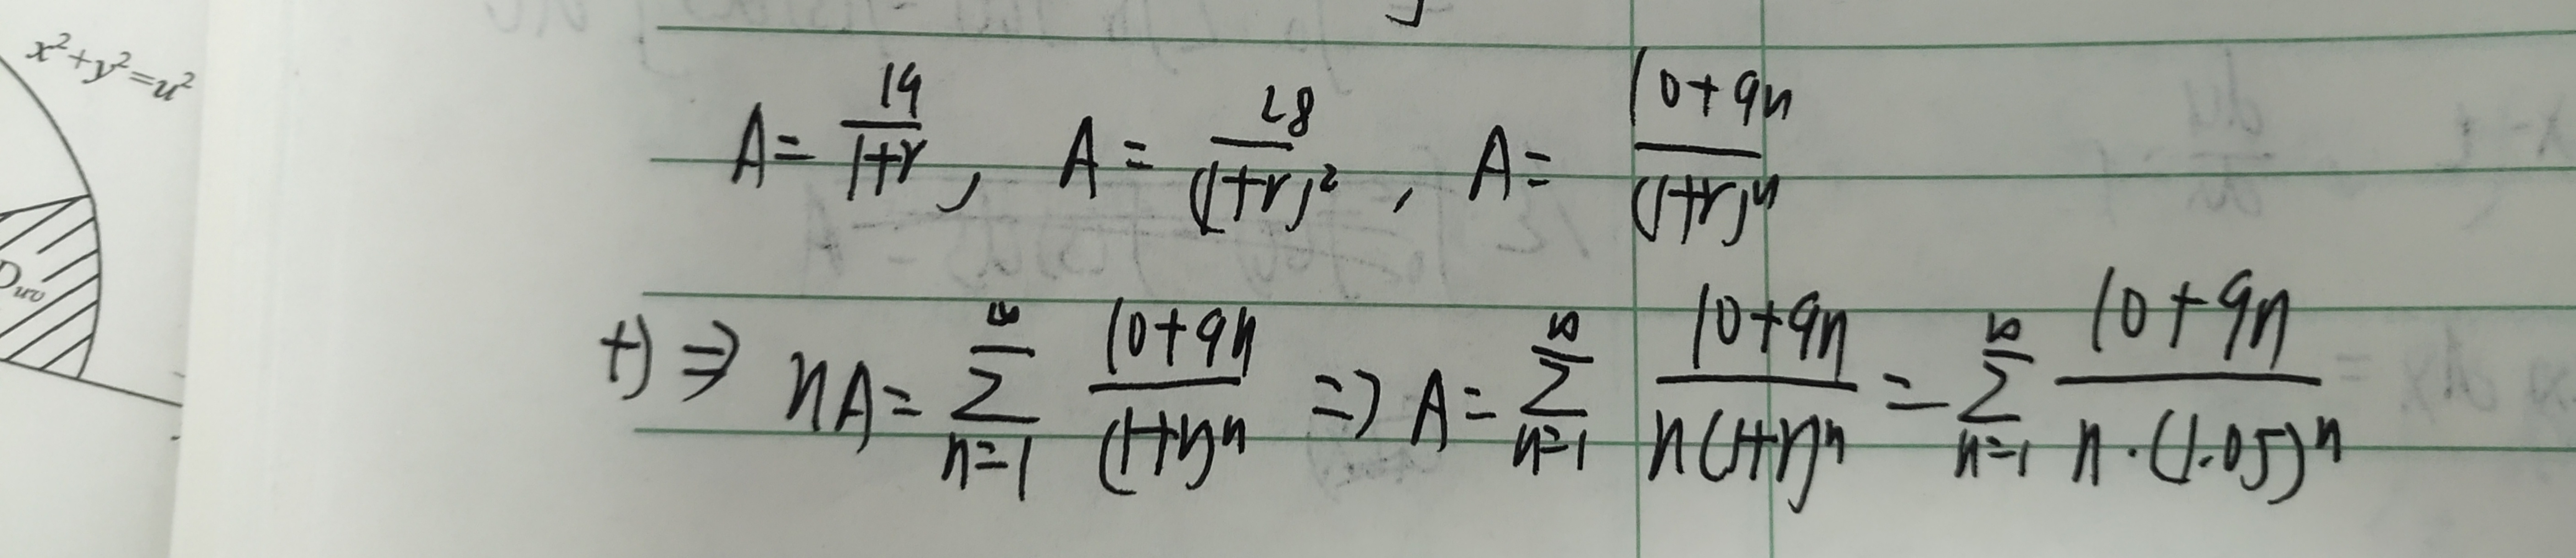 x²+y²=u²
A = 19/(1+r), A = 28/(1+r)², A = (10+9n)/(1+r)ⁿ
D_uv
+) ⇒ nA = ∑_{n=1}^{∞} (10+9n)/(1+r)ⁿ ⇒ A = ∑_{n=1}^{∞} (10+9n)/(n(1+r)ⁿ) = ∑_{n=1}^{∞} (10+9n)/(n·(1.05)ⁿ)